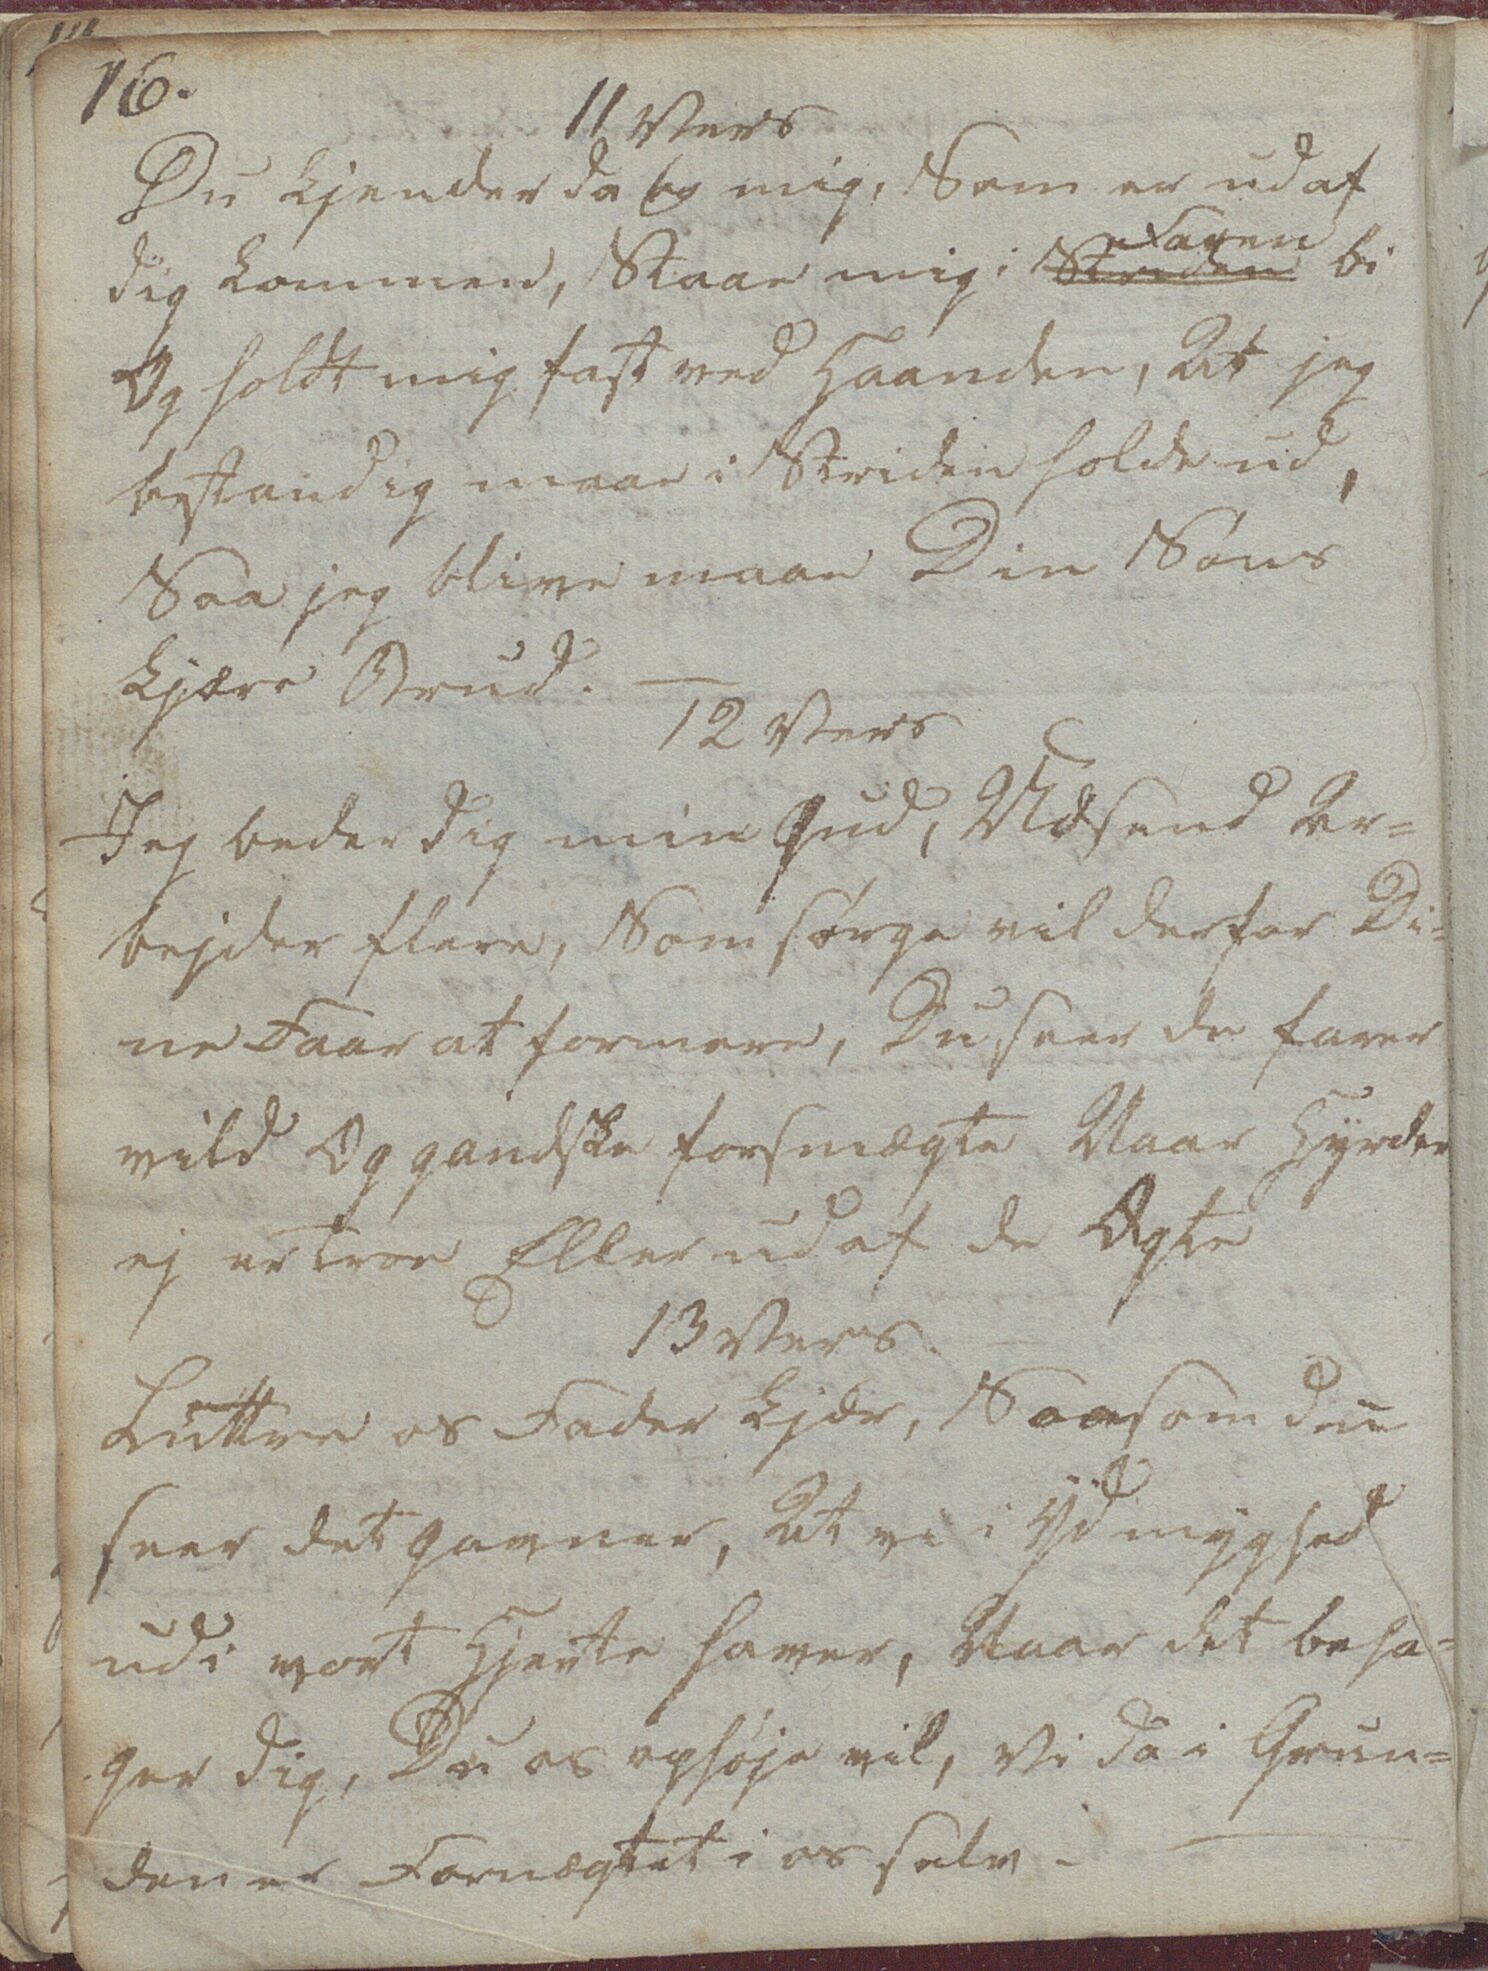 16.
11 Vers
Du kjender da og mig, Som er udaf
Faren
dig kommen, Staae mig i Striden bi
Og holdt mig fast ved Haanden, At jeg
bestandig maae i Striden holde ud,
Saa jeg blive maae Din Søns
kjære Brud. —
12 Vers
Jeg beder dig min Gud, Udsend Ar=
bejder flere, Som sørge vil derfor Di=
ne Faar at formere, Du seer de farer
vild Og gandske forsmægte Naar Hyrder
ej er troe Eller udaf de Ægte
13 Vers.
Luttre os Fader kjær, Saasom du
seer det gavner, At vi i Ydmyghed
udi vort Hjerte havner, Naar det beha=
ger dig, Du os ophøje vil, Vi da i Grun=
den er Fornægtet i os selv. —